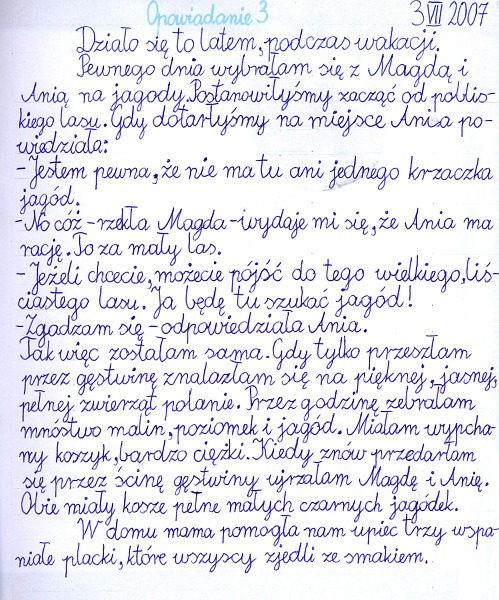 Opowiadanie 3
3 VII 2007
Działo się to latem, podczas wakacji.
Pewnego dnia wybrałam się z Magdą i
Anią na jagody. Postanowiłyśmy zacząć od poblis-
kiego lasu. Gdy dotarłyśmy na miejsce Ania po-
wiedziała:
- Jestem pewna, że nie ma tu ani jednego krzaczka
jagód.
- No cóż - rzekła Magda - wydaje mi się, że Ania ma
rację. To za mały las.
- Jeżeli chcecie, możecie pójść do tego wielkiego, liś-
ciastego lasu. Ja będę tu szukać jagód!
- Zgadzam się - odpowiedziała Ania.
Tak więc zostałam sama. Gdy tylko przeszłam
przez gęstwinę znalazłam się na pięknej, jasnej,
pełnej zwierząt polanie. Przez godzinę zebrałam
mnóstwo malin, poziomek i jagód. Miałam wypcha-
ny koszyk, bardzo ciężki. Kiedy znów przedarłam
się przez ścinę gęstwiny ujrzałam Magdę i Anię.
Obie miały kosze pełne małych czarnych jagódek.
W domu mama pomogła nam upiec trzy wspa-
niałe placki, które wszyscy zjedli ze smakiem.